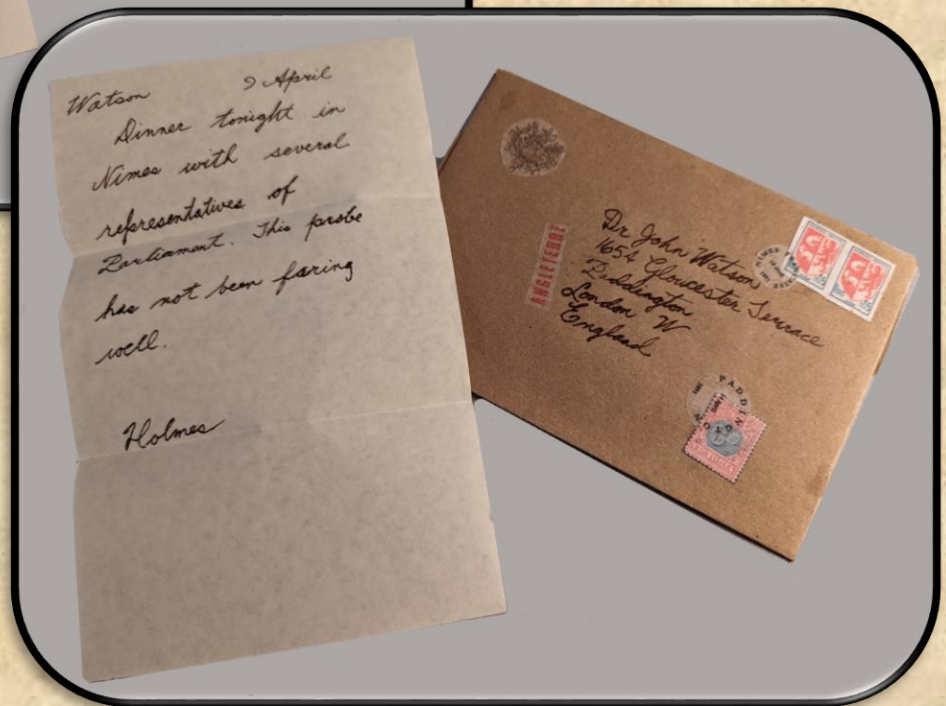 Watson 9 April
Dinner tonight in
Nimes with several
representatives of
Parliament. This probe
has not been faring
well.
Holmes
ANGLETERRE
Dr John Watson
1654 Gloucester Terrace
Paddington
London W
England
PADDINGTON